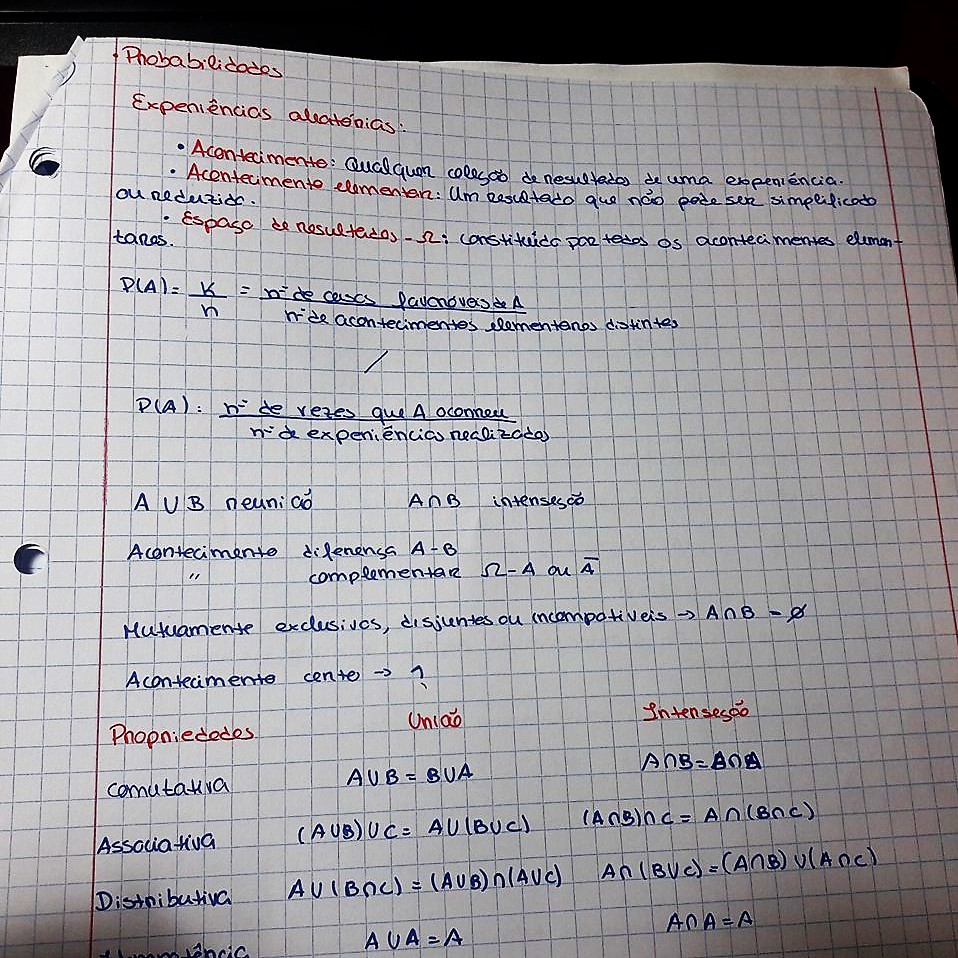 Probabilidades
Experiências aleatórias:
• Acontecimento: Qualquer coleção de resultados de uma experiência.
• Acontecimento elementar: Um resultado que não pode ser simplificado
ou reduzido.
• Espaço de resultados - Ω: constituído por todos os acontecimentos elemen-
tares.
P(A) = K/n = nº de casos favoráveis de A / nº de acontecimentos elementares distintos
/
P(A): nº de vezes que A ocorreu / nº de experiências realizadas
A ∪ B reunião A∩B interseção
Acontecimento diferença A-B
" complementar Ω-A ou A̅
Mutuamente exclusivos, disjuntos ou incompatíveis → A∩B = ∅
Acontecimento certo → ?
Propriedades União Interseção
Comutativa A∪B = B∪A A∩B = B∩A
Associativa (A∪B)∪C = A∪(B∪C) (A∩B)∩C = A∩(B∩C)
Distributiva A∪(B∩C) = (A∪B)∩(A∪C) A∩(B∪C) = (A∩B)∪(A∩C)
A∪A = A A∩A = A